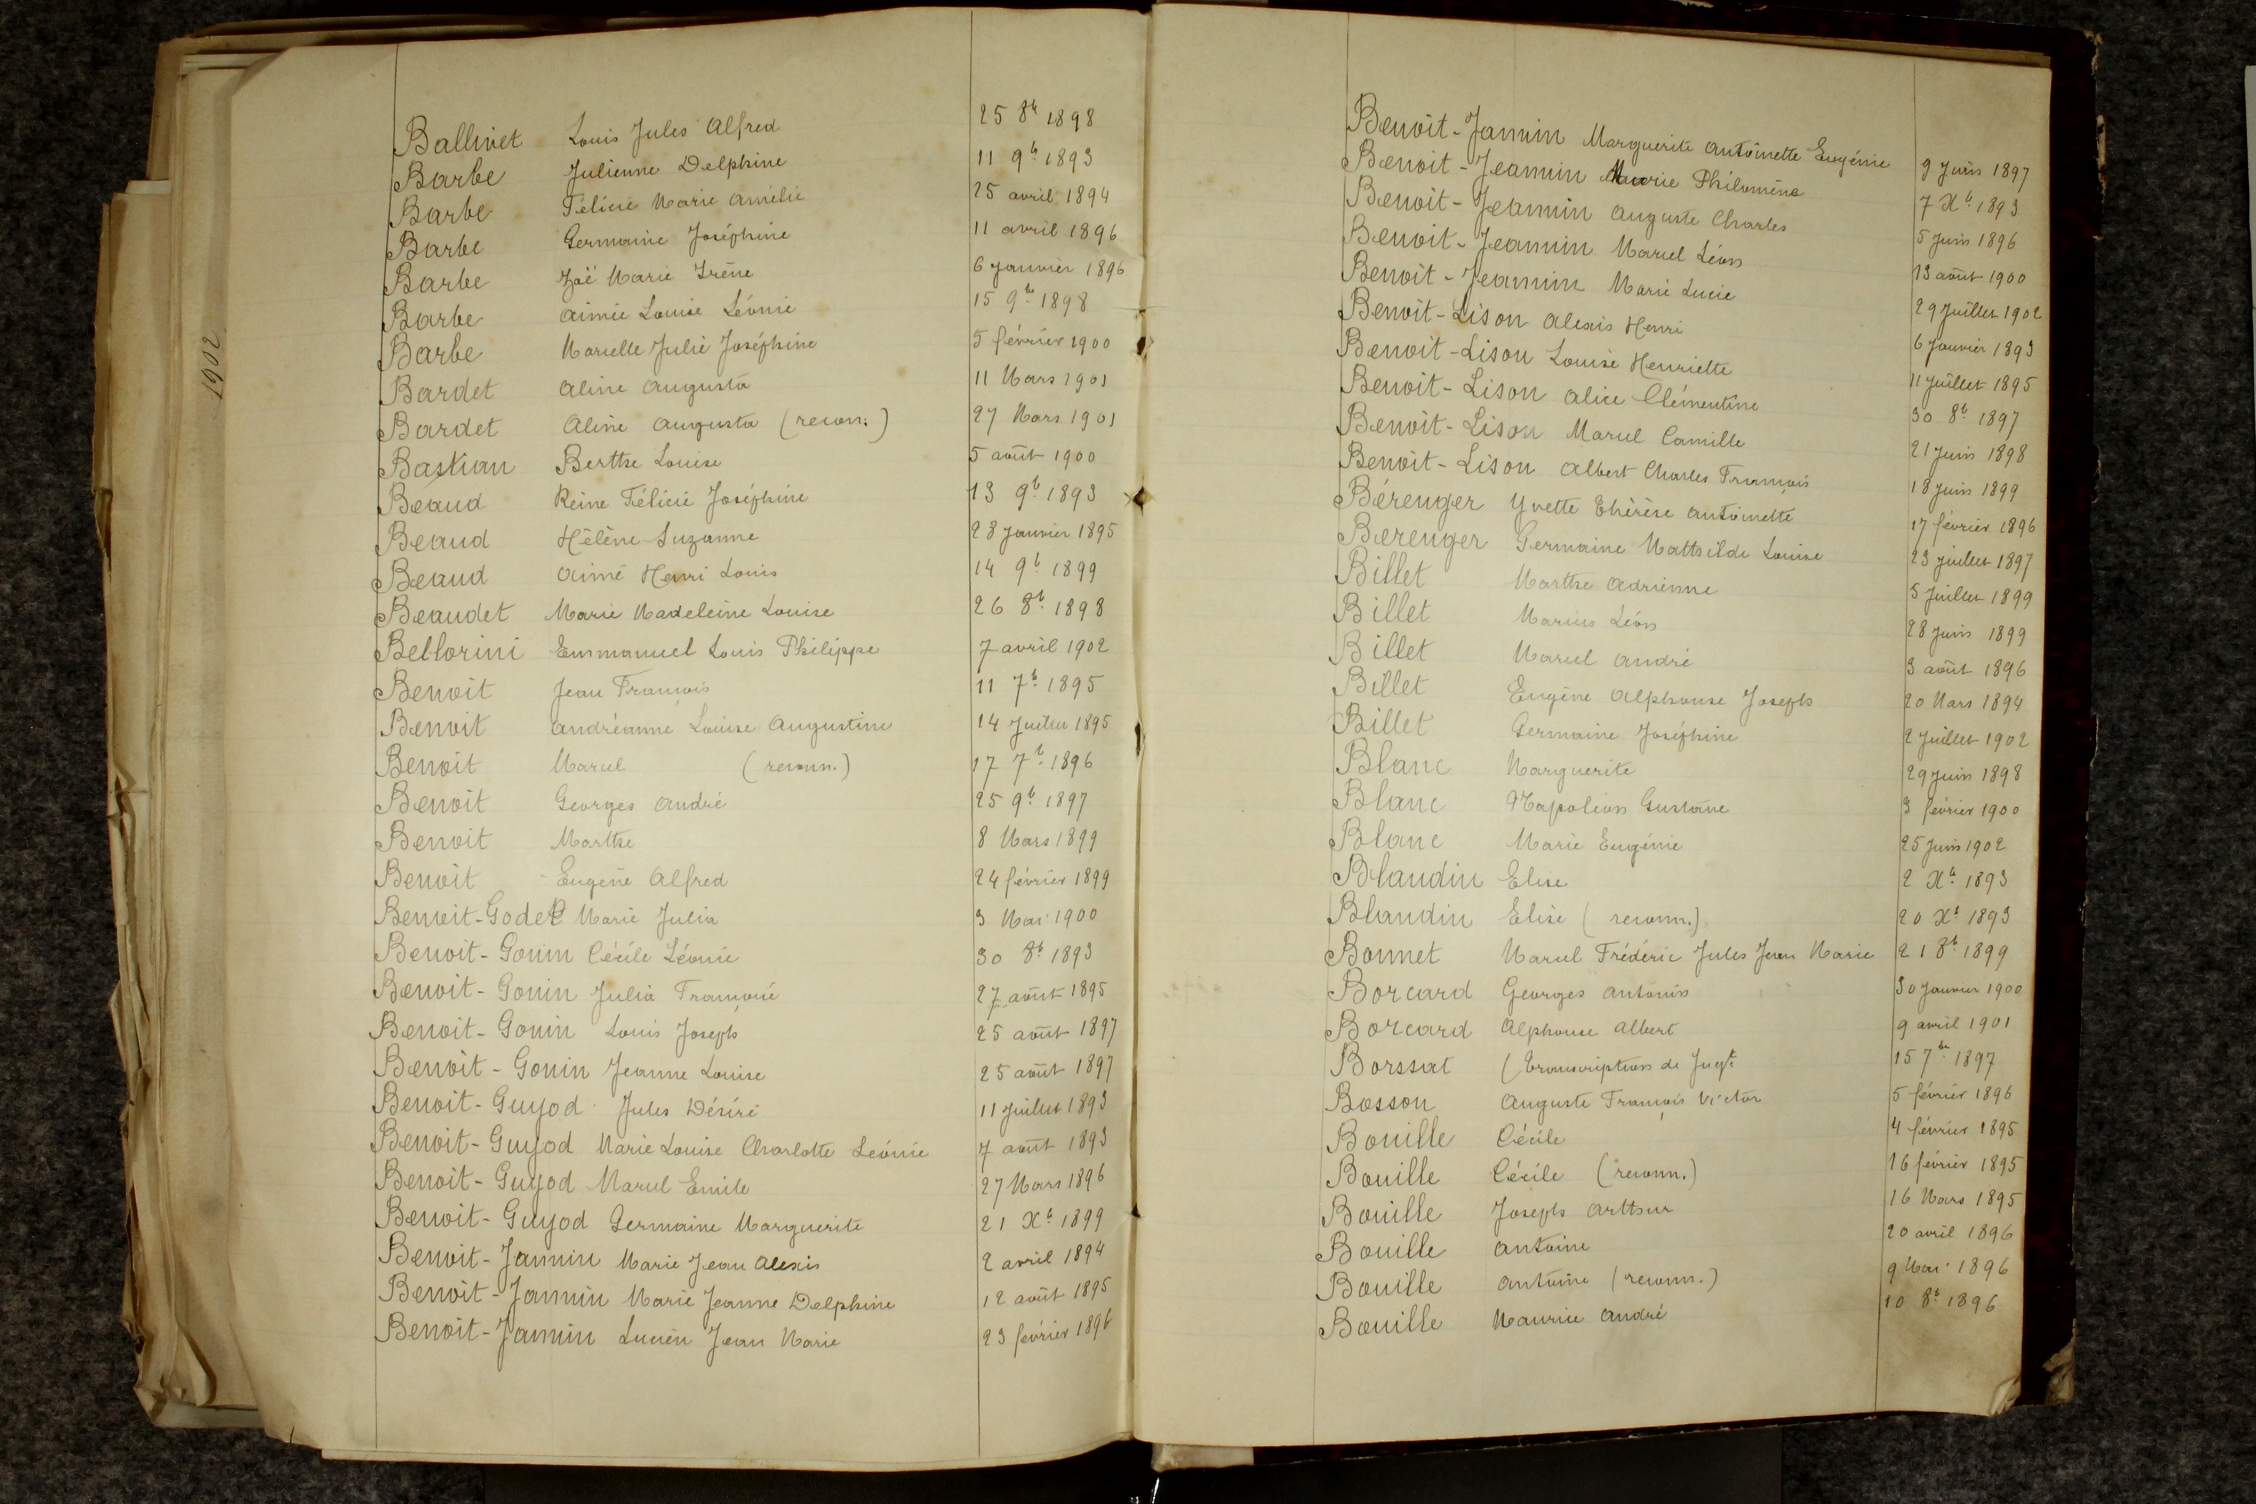 1902
Ballivet Louis Jules Alfred 25 8b 1898
Barbe Julienne Delphine 11 9b 1893
Barbe Félicie Marie Amélie 25 avril 1894
Barbe Germaine Joséphine 11 avril 1896
Barbe Zoë Marie Irène 6 Janvier 1896
Barbe Aimée Louise Léonie 15 9b 1898
Barbe Marielle Julie Joséphine 5 février 1900
Bardet Aline Augusta 11 Mars 1901
Bardet Aline Augusta (recon.) 27 Mars 1901
Bastian Berthe Louise 5 août 1900
Beaud Reine Félicie Joséphine 13 9b 1893
Beaud Hélène Suzanne 28 Janvier 1895
Beaud Aimé Henri Louis 14 9b 1899
Beaudet Marie Madeleine Louise 26 8b 1898
Bellorini Emmanuel Louis Philippe 7 avril 1902
Benoit Jean François 11 7b 1895
Benoit Andréanne Louise Augustine 14 Juillet 1895
Benoit Marcel (reconn.) 17 7b 1896
Benoit Georges André 25 9b 1897
Benoit Marthe 8 Mars 1899
Benoit Eugène Alfred 24 février 1899
Benoit-Godet Marie Julia 3 Mai 1900
Benoit-Gonin Cécile Léonie 30 8b 1893
Benoit-Gonin Julia Françoise 27 août 1895
Benoit-Gonin Louis Joseph 25 août 1897
Benoit-Gonin Jeanne Louise 25 août 1897
Benoit-Guyod Jules Désiré 11 Juillet 1893
Benoit-Guyod Marie Louise Charlotte Léonie 7 août 1893
Benoit-Guyod Marcel Emile 27 Mars 1896
Benoit-Guyod Germaine Marguerite 21 Xb 1899
Benoit-Jannin Marie Jean Alexis 2 avril 1894
Benoit-Jannin Marie Jeanne Delphine 12 août 1895
Benoit-Jannin Lucien Jean Marie 23 février 1896
Benoit-Jannin Marguerite Antoinette Eugénie 9 Juin 1897
Benoit-Jeannin Marie Philomène 7 Xb 1893
Benoit-Jeannin Auguste Charles 5 Juin 1896
Benoit-Jeannin Marcel Léon 13 août 1900
Benoit-Jeannin Marie Lucie 29 Juillet 1902
Benoit-Lison Alexis Henri 6 Janvier 1893
Benoit-Lison Louise Henriette 11 Juillet 1895
Benoit-Lison Alice Clémentine 30 8b 1897
Benoit-Lison Marcel Camille 21 Juin 1898
Benoit-Lison Albert Charles François 18 Juin 1899
Bérenger Yvette Thérèse Antoinette 17 février 1896
Berenger Germaine Mathilde Louise 23 Juillet 1897
Billet Marthe Adrienne 3 Juillet 1899
Billet Marius Léon 28 Juin 1899
Billet Marcel André 3 août 1896
Billet Eugène Alphonse Joseph 20 Mars 1894
Billet Germaine Joséphine 2 Juillet 1902
Blanc Marguerite 29 Juin 1898
Blanc Napoléon Gustave 3 février 1900
Blanc Marie Eugénie 25 Juin 1902
Blandin Elise 2 Xb 1893
Blandin Elise (reconn.) 20 Xb 1893
Bonnet Marcel Frédéric Jules Jean Marie 21 8b 1899
Borcard Georges Antonin 30 Janvier 1900
Borcard Alphonse Albert 9 avril 1901
Borssat (Transcription de Jugt 15 7b 1897
Bosson Auguste François Victor 5 février 1896
Bouille Cécile 4 février 1895
Bouille Cécile (reconn.) 16 février 1895
Bouille Joseph Arthur 16 Mars 1895
Bouille Antoine 20 avril 1896
Bouille Antoine (reconn.) 9 Mai 1896
Bouille Maurice André 10 8b 1896